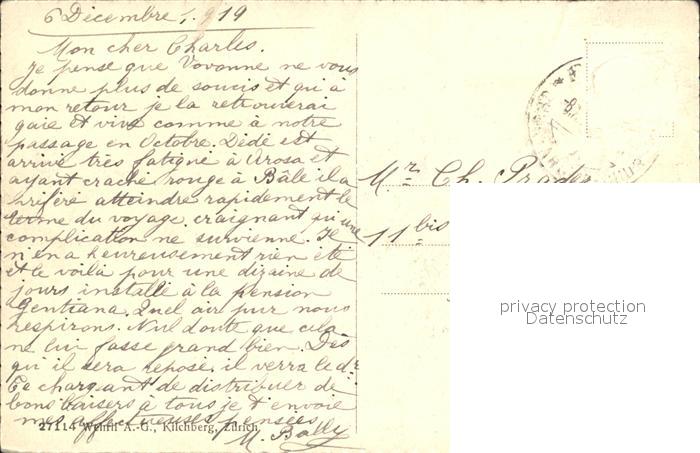 6 Décembre 1919
Mon cher Charles.
Je pense que Vovonne ne vous
donne plus de soucis et qu'à
mon retour je la retrouverai
gaie et vive comme à notre
passage en Octobre. Dédé est
arrivé très fatigué à Arosa et
ayant craché rouge à Bâle il a
préféré atteindre rapidement le
terme du voyage craignant qu'une
complication ne survienne. Il
n'en a heureusement rien été
et le voilà pour une dizaine de
jours installé à la pension
Gentiana. Quel air pur nous
respirons. Nul doute que cela
ne lui fasse grand bien. Dès
qu'il sera reposé il verra le dr
Te chargeant de distribuer de
bons baisers à tous je t'envoie
mes affectueuses pensées
M. Bally
27114 Wehrli A.-G., Kilchberg, Zürich
Mr. Ch.
11 bis
privacy protection
Datenschutz